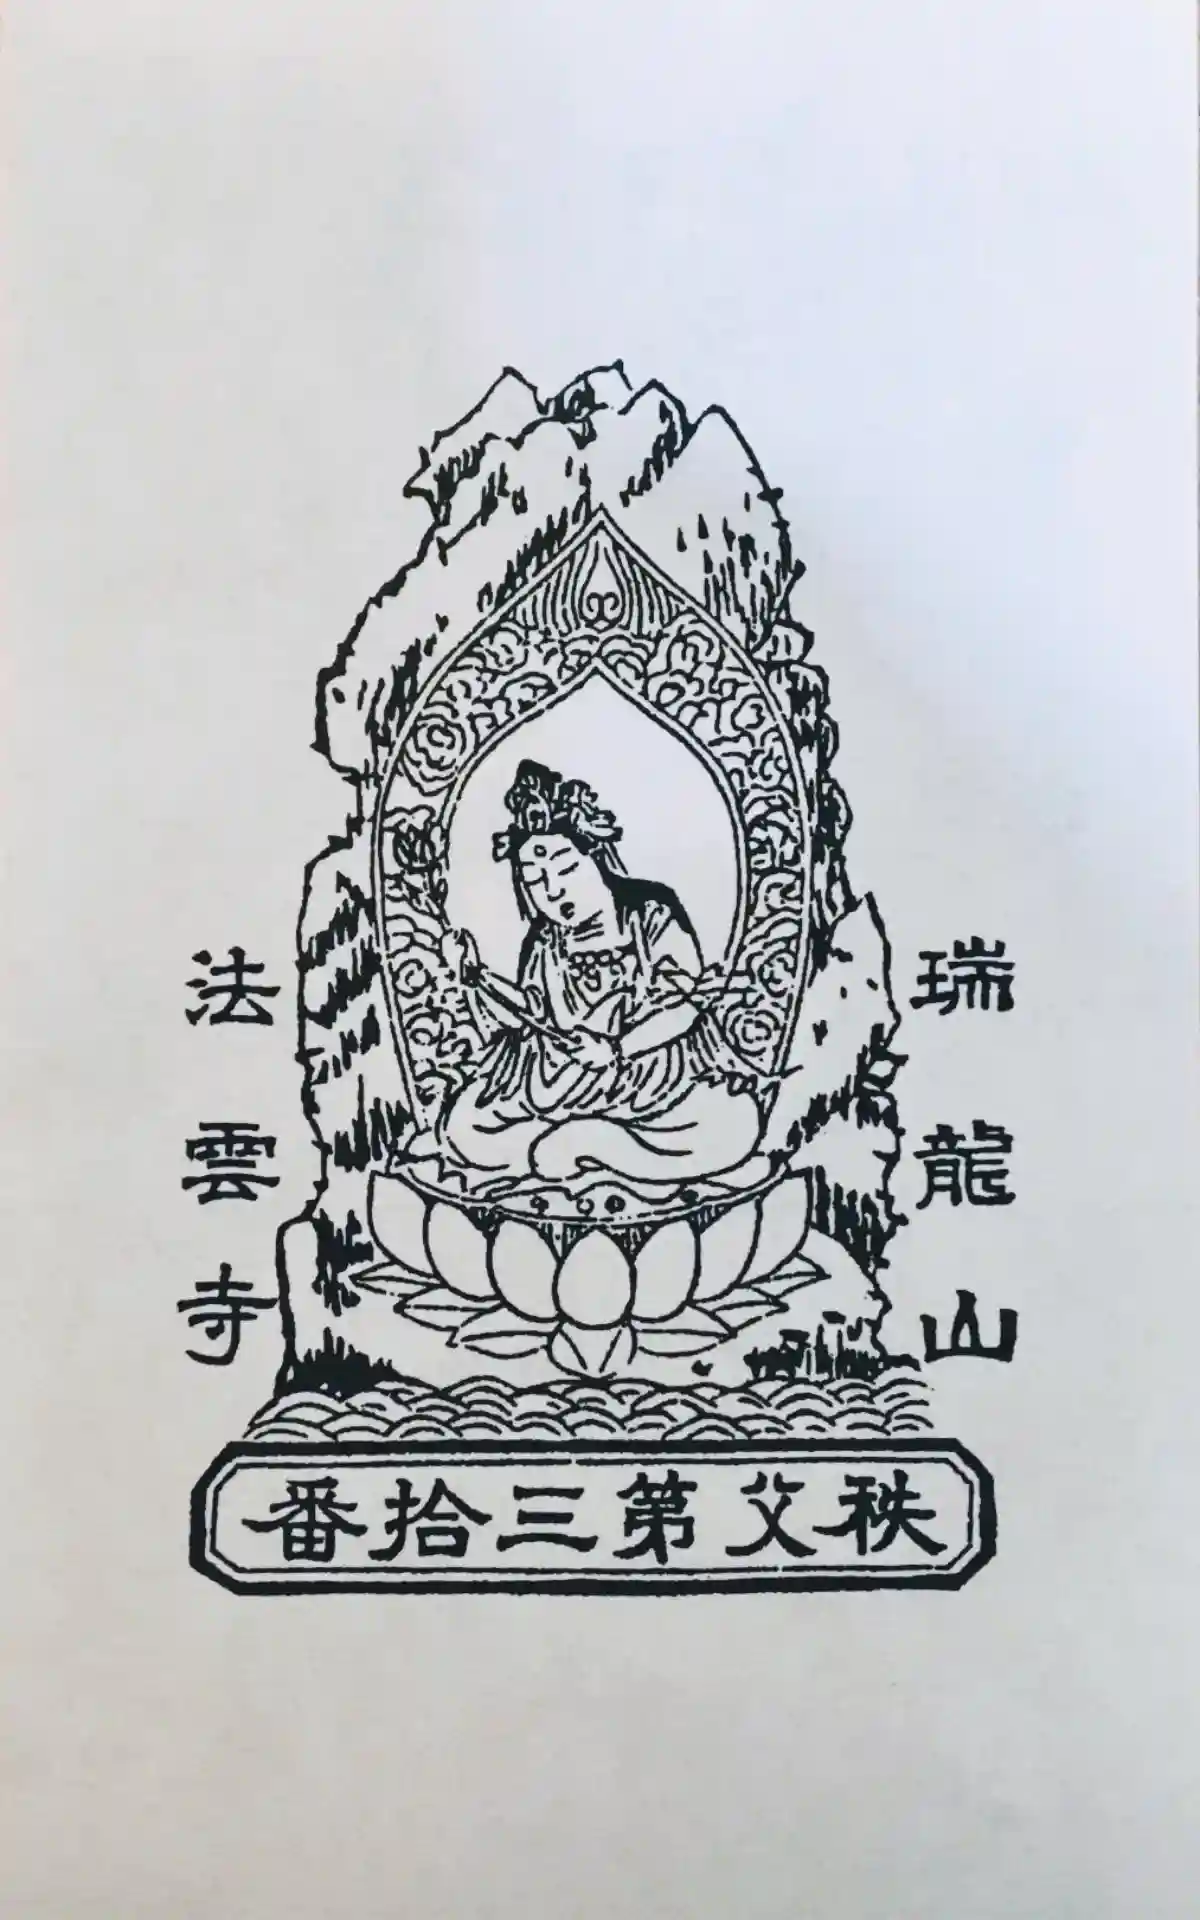 瑞龍山
法雲寺
秩父第三拾番